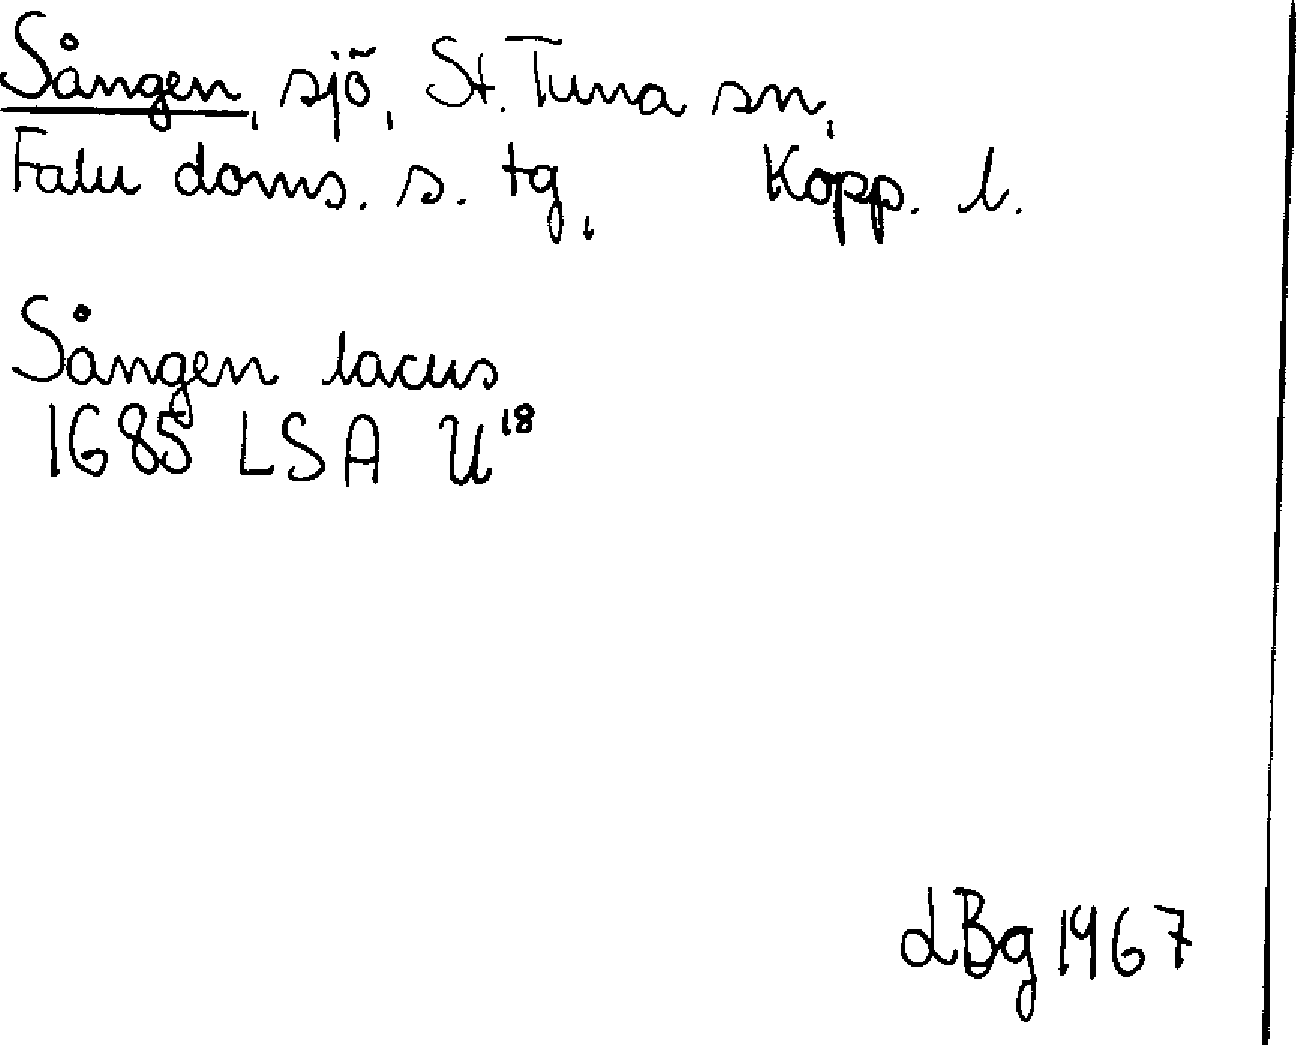 Sången, sjö, St. Tuna sn,
Falu doms. s. tg, Kopp. l.
Sången lacus
1685 LSA U18
LBg 1967